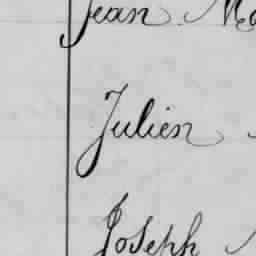 Jean
Julien
Joseph